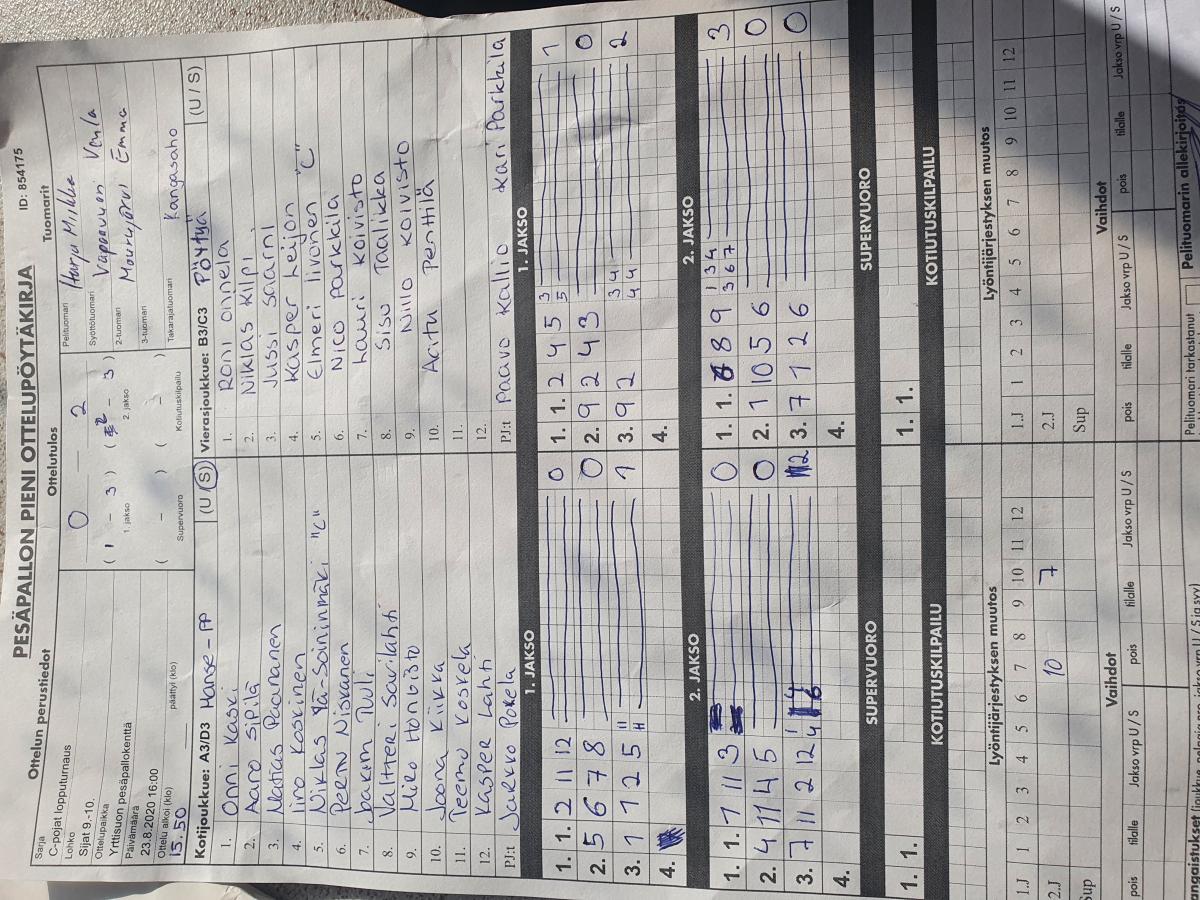 PESÄPALLON PIENI OTTELUPÖYTÄKIRJA ID: 854175
Ottelun perustiedot
Ottelutulos
Tuomarit
Sarja
C-pojat lopputurnaus
Lohko
Sijat 9.-10.
Ottelupaikka
Yrttisuon pesäpallokenttä
Päivämäärä
23.8.2020 16:00
Ottelu alkoi (klo)
15.50
päättyi (klo)
0 2
( 1 - 3 ) ( 2 - 3 )
1. jakso 2. jakso
( - ) ( - )
Supervuoro Kotiutuskilpailu
Pelituomari
Harju Mikko
Syöttötuomari
Venla
2-tuomari
Emma
3-tuomari
Takarajatuomari
Kangasaho
Kotijoukkue: A3/D3 Manse-PP (U / S)
1. Onni Kaski
2. Aaro Sipilä
3. Matias Paananen
4. Iiro Koskinen
5. Niklas Ylä-Soininmäki "C"
6. Perttu Niskanen
7. Joakim Tuuli
8. Valtteri Savilahti
9. Miro Honvisto
10. Joona Kiikka
11. Teemu Koskela
12. Kasper Lahti
PJ:t Jarkko Pokela
Vierasjoukkue: B3/C3 Pöytyä (U / S)
1. Roni Onnela
2. Niklas Kilpi
3. Jussi Saarni
4. Kasper Leijon
5. Elmeri Iivonen "C"
6. Nico Parkkila
7. Lauri Koivisto
8. Sisu Taalikka
9. Niilo Koivisto
10. Arttu Penttilä
11.
12.
PJ:t Paavo Kallio Kari Parkkila
1. JAKSO
1. 1. 2 11 12 0
2. 5 6 7 8 0
3. 1 1 2 5 11 11 1
4.
1. JAKSO
1. 1. 2 4 5 3 5 1
2. 9 2 4 3 0
3. 9 2 3 4 4 4 2
4.
2. JAKSO
1. 1. 1 11 3 0
2. 4 11 4 5 0
3. 7 11 2 12 2
4.
2. JAKSO
1. 1. 8 9 1 3 4 3 6 7 3
2. 1 10 5 6 0
3. 7 1 2 6 0
4.
SUPERVUORO
1. 1.
SUPERVUORO
1. 1.
KOTIUTUSKILPAILU
KOTIUTUSKILPAILU
Lyöntijärjestyksen muutos
1.J 1 2 3 4 5 6 7 8 9 10 11 12
2.J 10 7
Sup
Lyöntijärjestyksen muutos
1.J 1 2 3 4 5 6 7 8 9 10 11 12
2.J
Sup
Vaihdot
pois tilalle Jakso vrp U / S pois tilalle Jakso vrp U / S
Vaihdot
pois tilalle Jakso vrp U / S pois tilalle Jakso vrp U / S
Pelituomari tarkastanut
Pelituomarin allekirjoitus